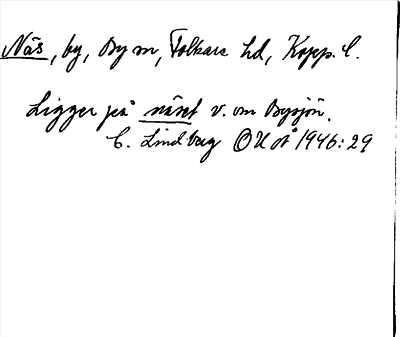 Näs, by, By sn, Folkare hd, Kopp. l.
Ligger på näset v. om Bysjön.
C. Lindberg OUÅ 1946:29